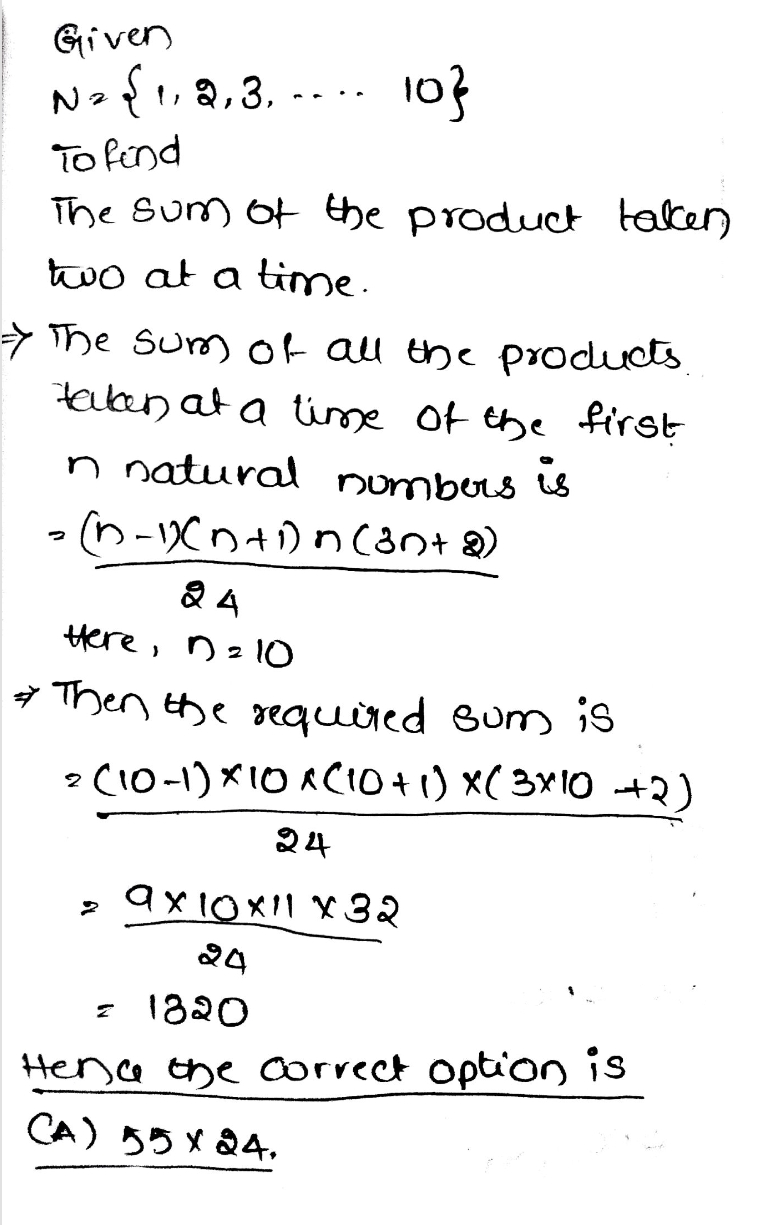 Given
N = {1, 2, 3, ..... 10}
To find
The sum of the product taken
two at a time.
⇒ The sum of all the products
taken at a time of the first
n natural numbers is
= (n-1)(n+1) n (3n+2)
24
Here, n = 10
⇒ Then the required sum is
= (10-1) × 10 × (10+1) × (3×10 +2)
24
= 9 × 10 × 11 × 32
24
= 1320
Hence the correct option is
(A) 55 × 24.